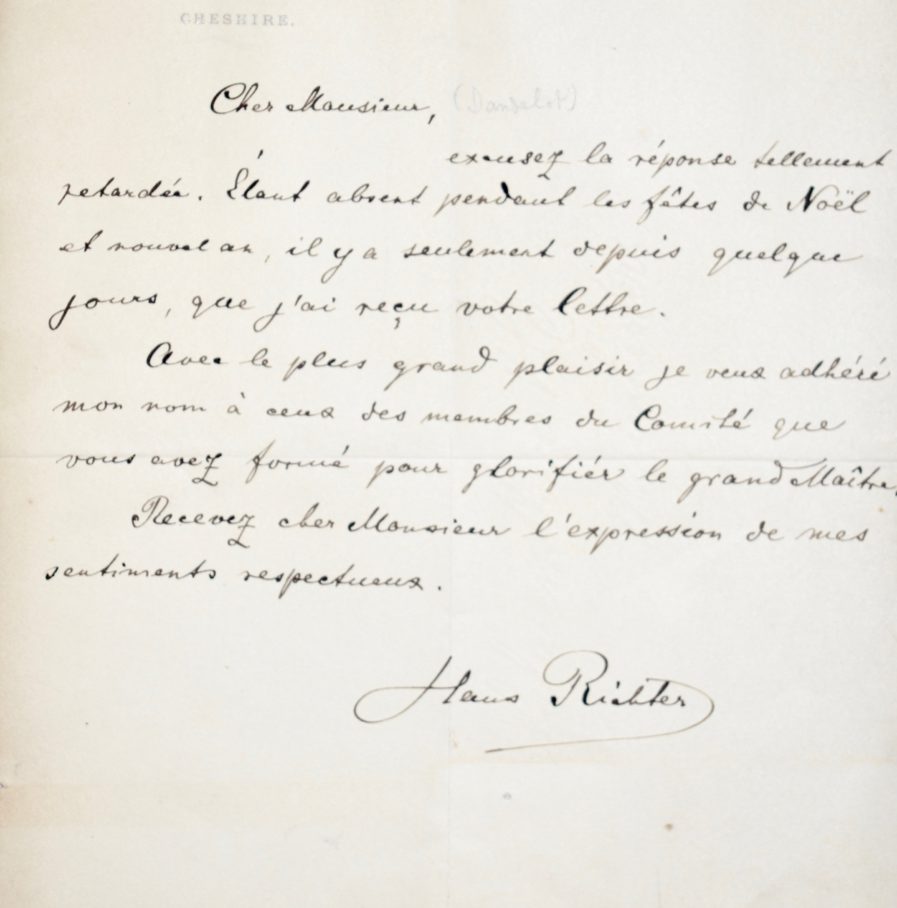 CHESHIRE.
Cher Monsieur, (Dandelot)
excusez la réponse tellement
retardée. Étant absent pendant les fêtes de Noël
et nouvel an, il y a seulement depuis quelque
jours, que j'ai reçu votre lettre.
Avec le plus grand plaisir je veux adhéré
mon nom à ceux des membres du Comité que
vous avez formé pour glorifiér le grand Maître.
Recevez cher Monsieur l'expression de mes
sentiments respectueux.
Hans Richter